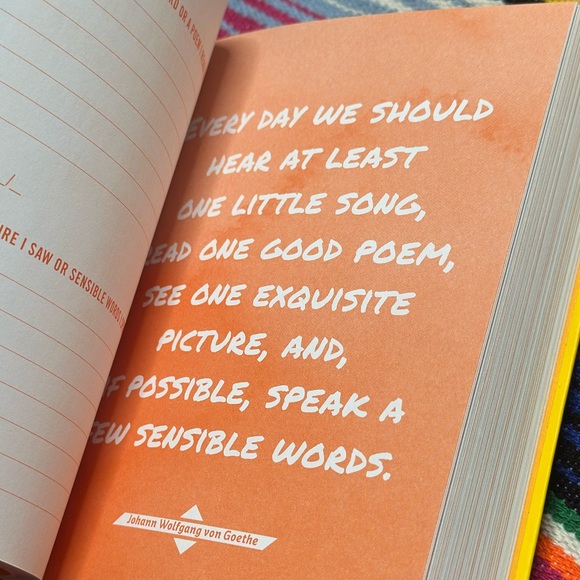 RD OR A POEM I
URE I SAW OR SENSIBLE WORDS I
EVERY DAY WE SHOULD
HEAR AT LEAST
ONE LITTLE SONG,
READ ONE GOOD POEM,
SEE ONE EXQUISITE
PICTURE, AND,
IF POSSIBLE, SPEAK A
FEW SENSIBLE WORDS.
Johann Wolfgang von Goethe